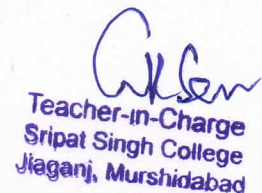 Teacher-in-Charge
Sripat Singh College
Jiaganj, Murshidabad